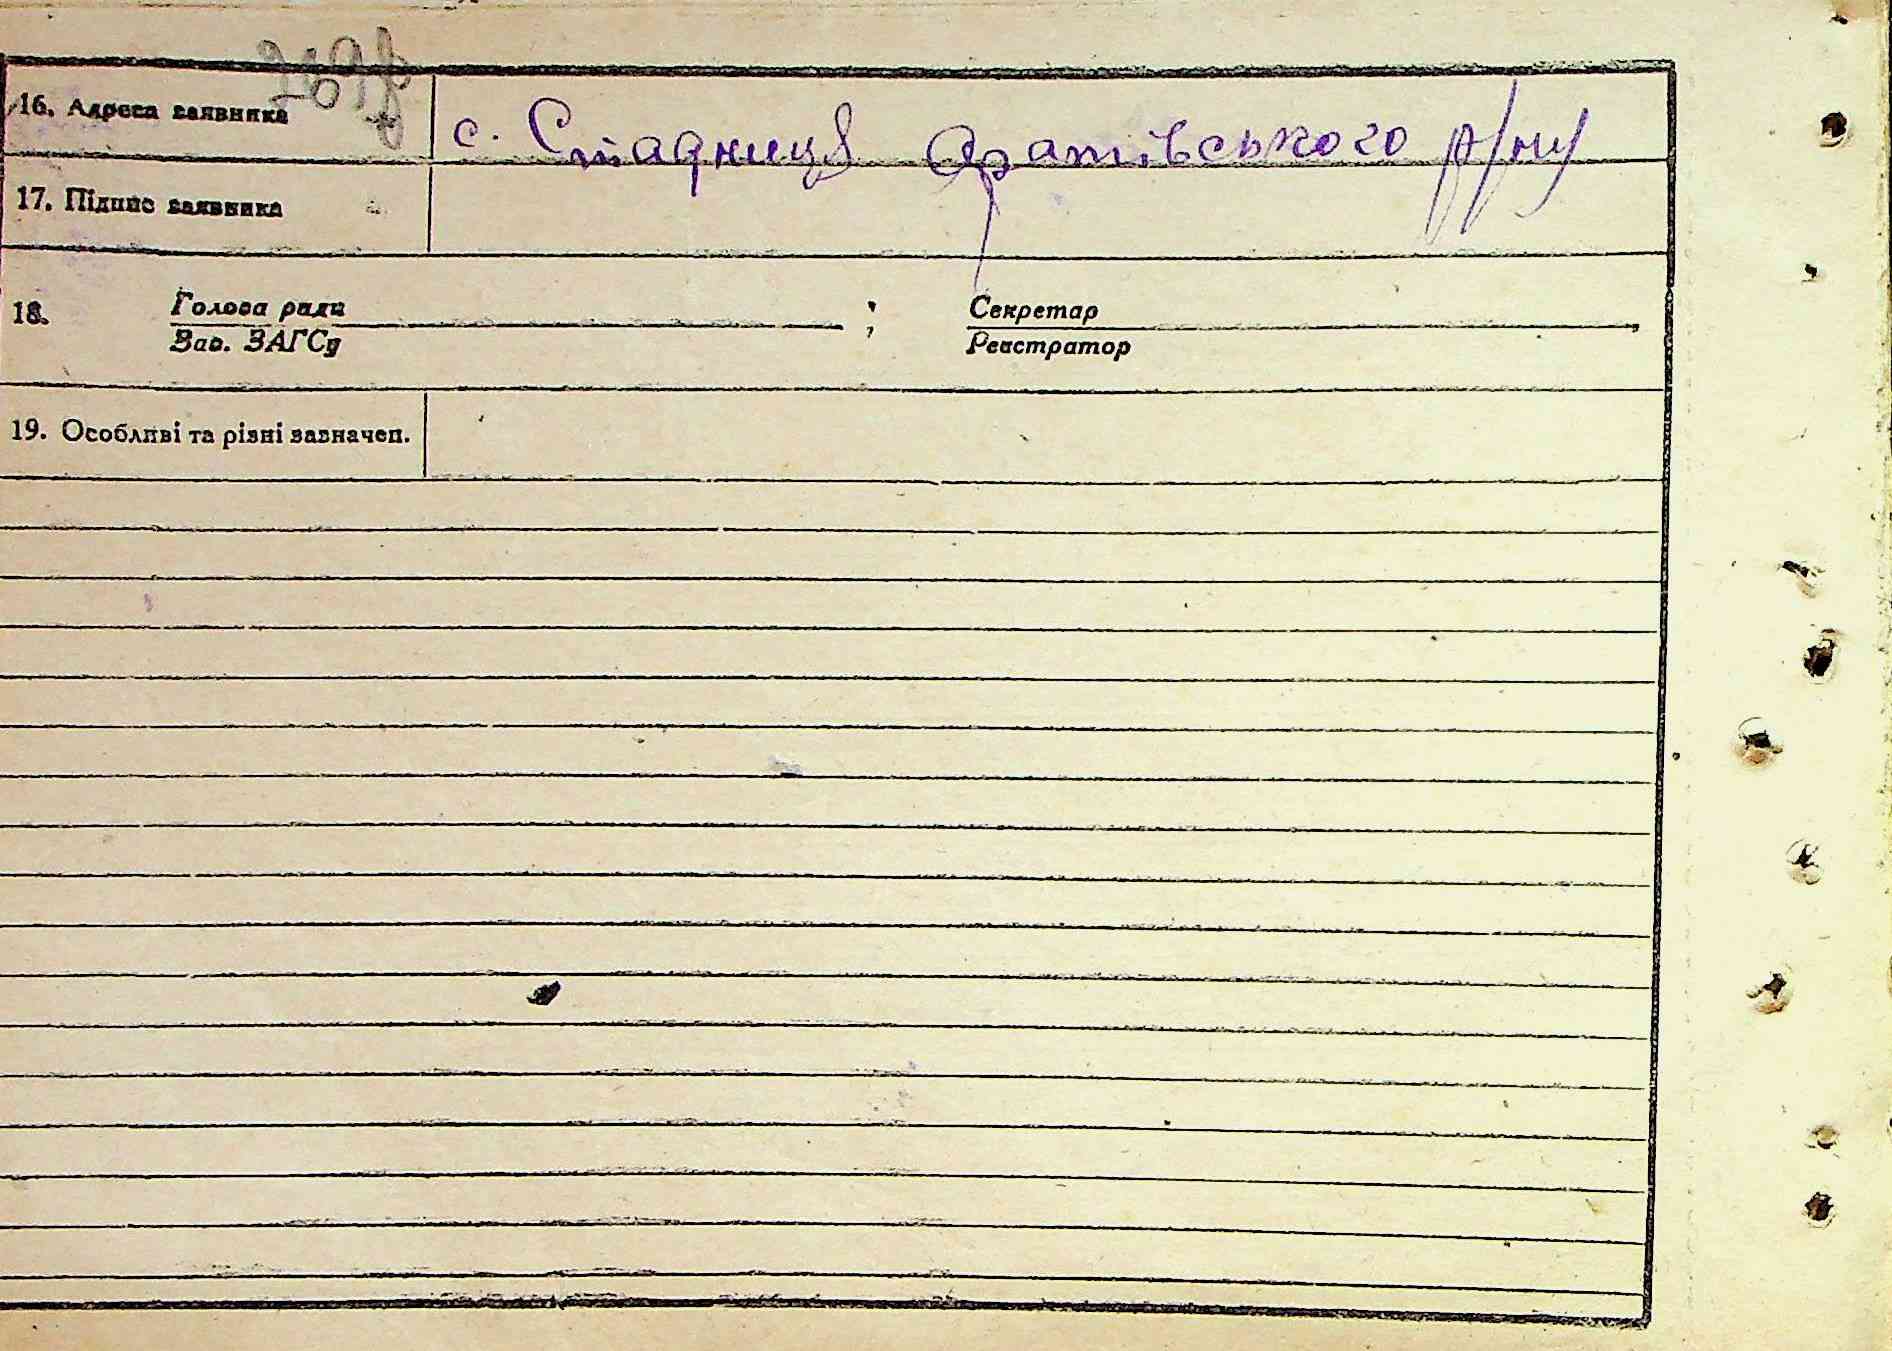 269
16. Адреса заявника
с. Стадниця Оратівського р/ну
17. Підпис заявника
18. Голова ради ; Секретар
Зав. ЗАГСу Реєстратор
19. Особливі та різні зазначен.